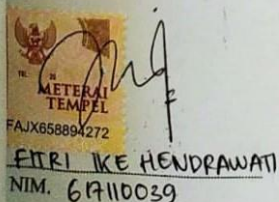 METERAI
TEMPEL
FAJX658894272
FITRI IKE HENDRAWATI
NIM. 617110039